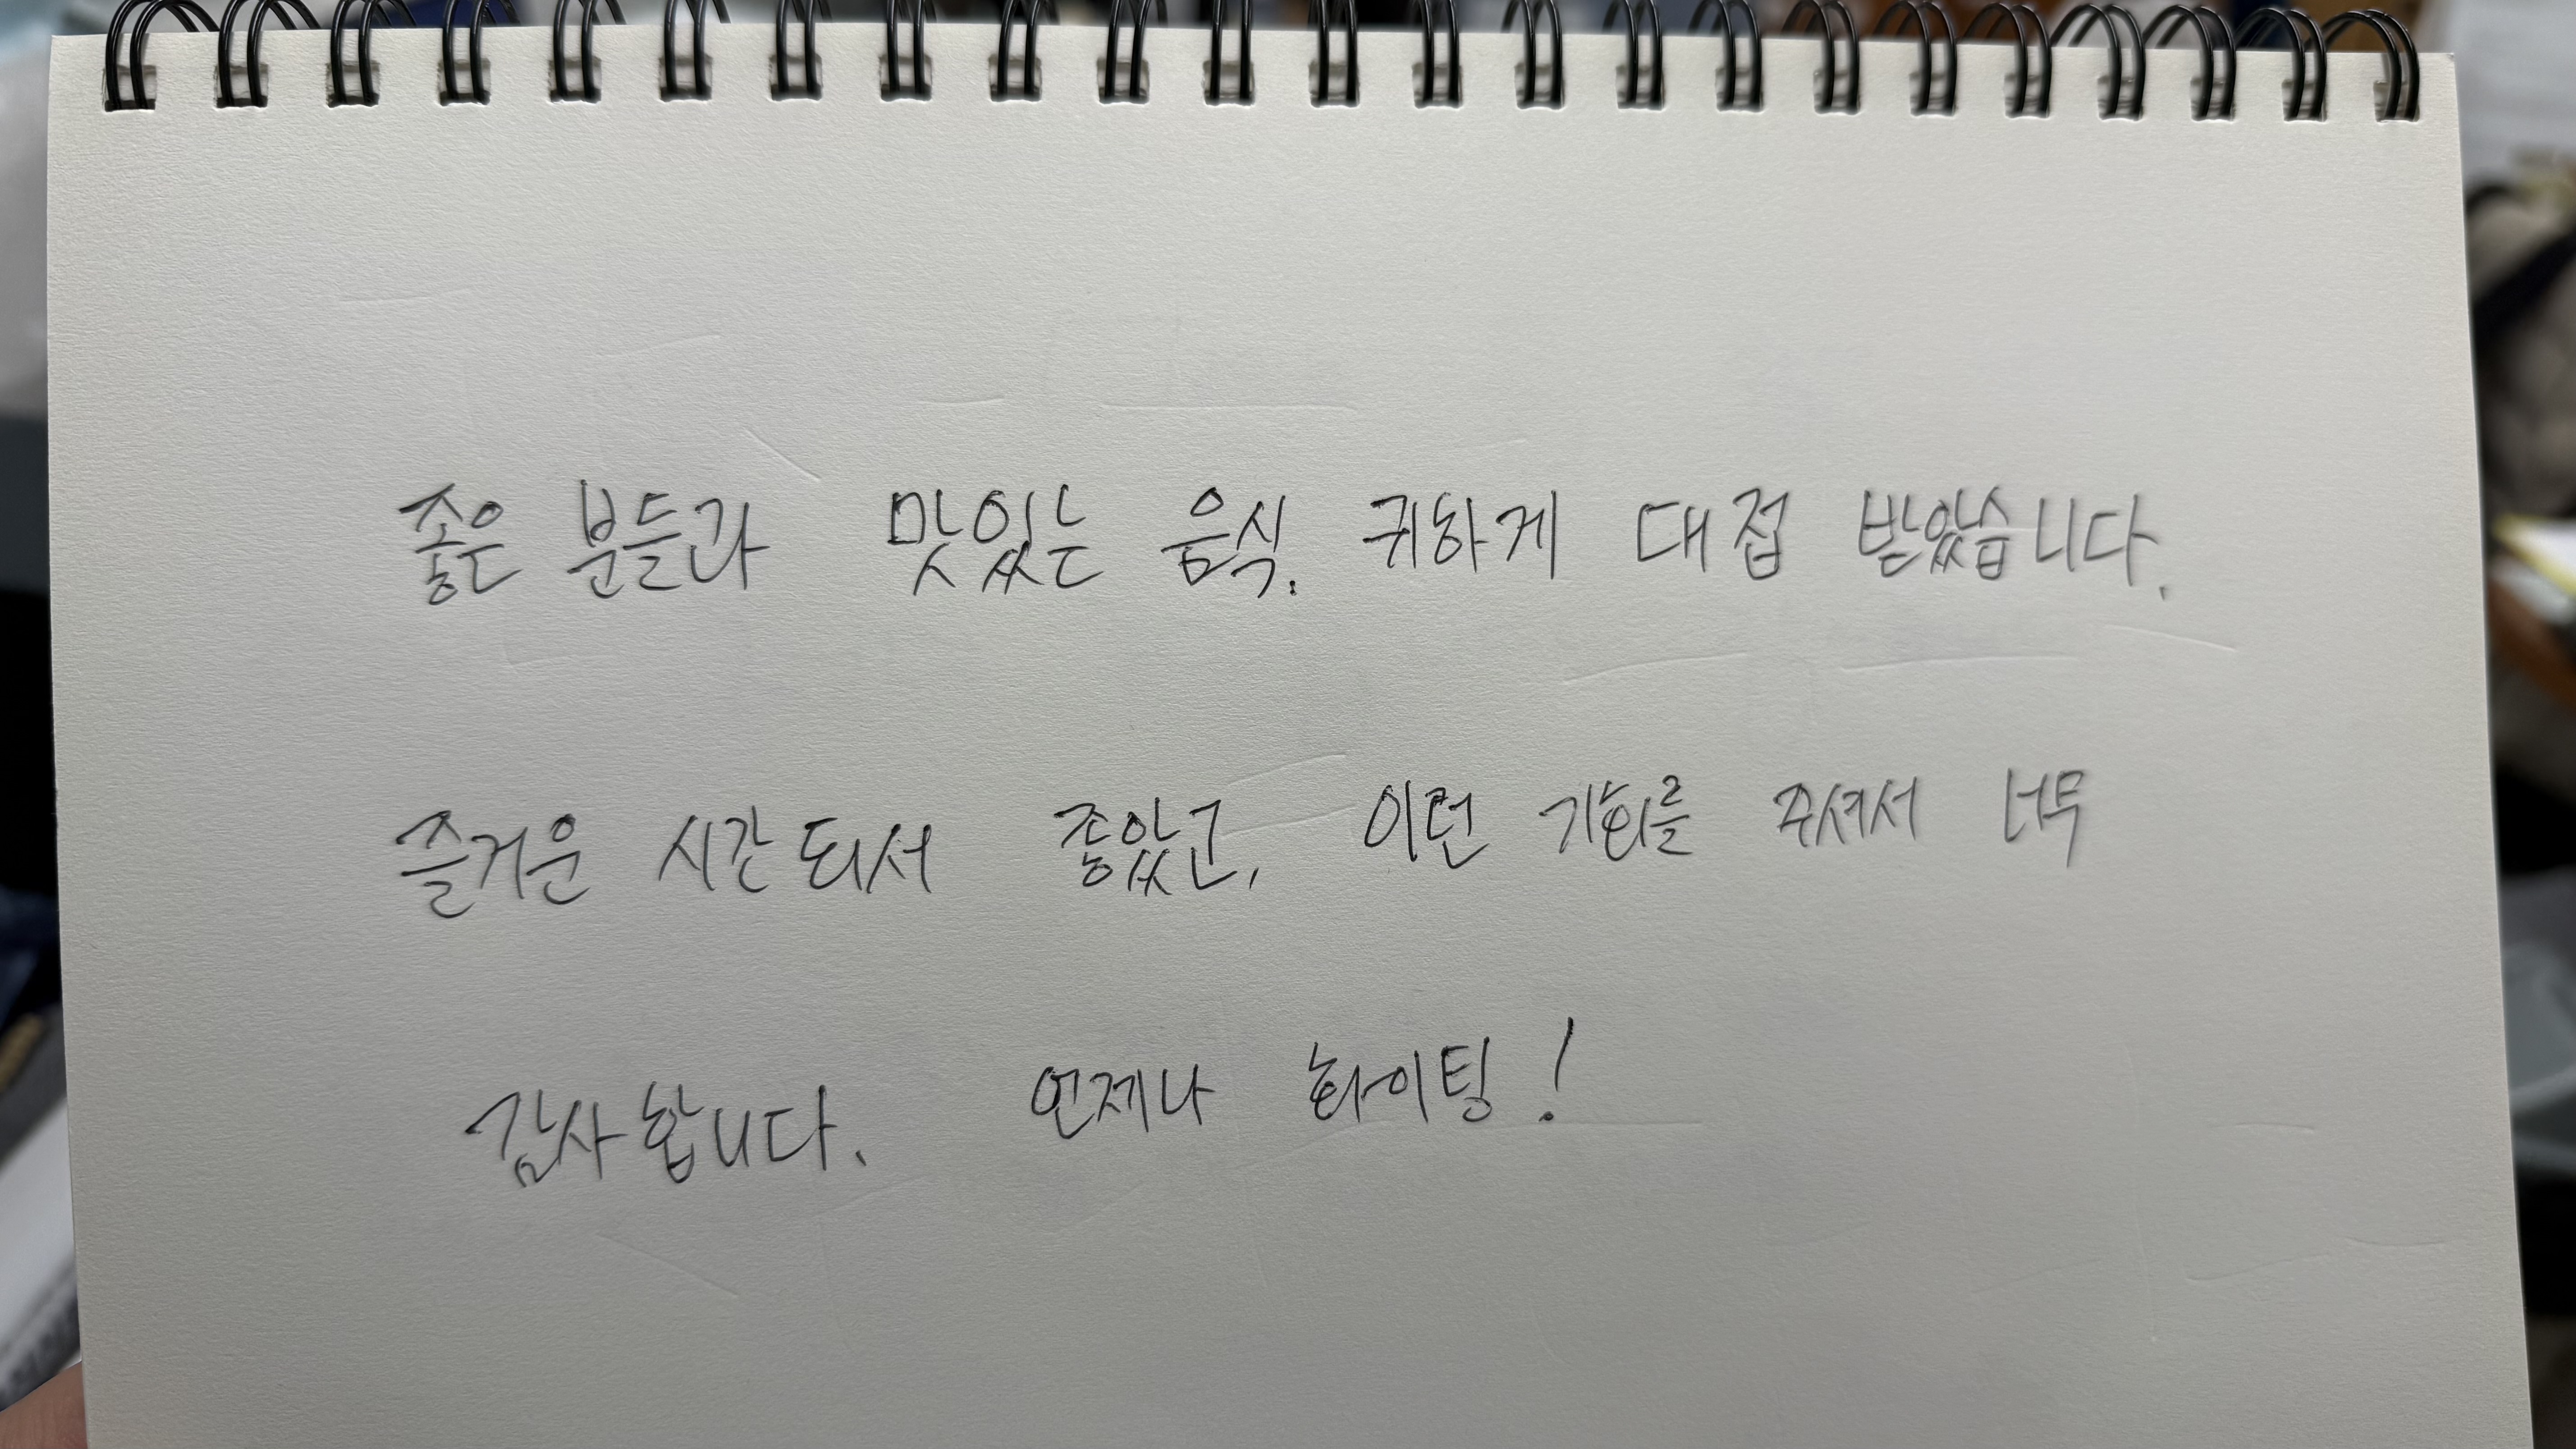 좋은 분들과 맛있는 음식. 귀하게 대접 받았습니다.
즐거운 시간되서 좋았고, 이런 기회를 주셔서 너무
감사합니다. 언제나 화이팅!